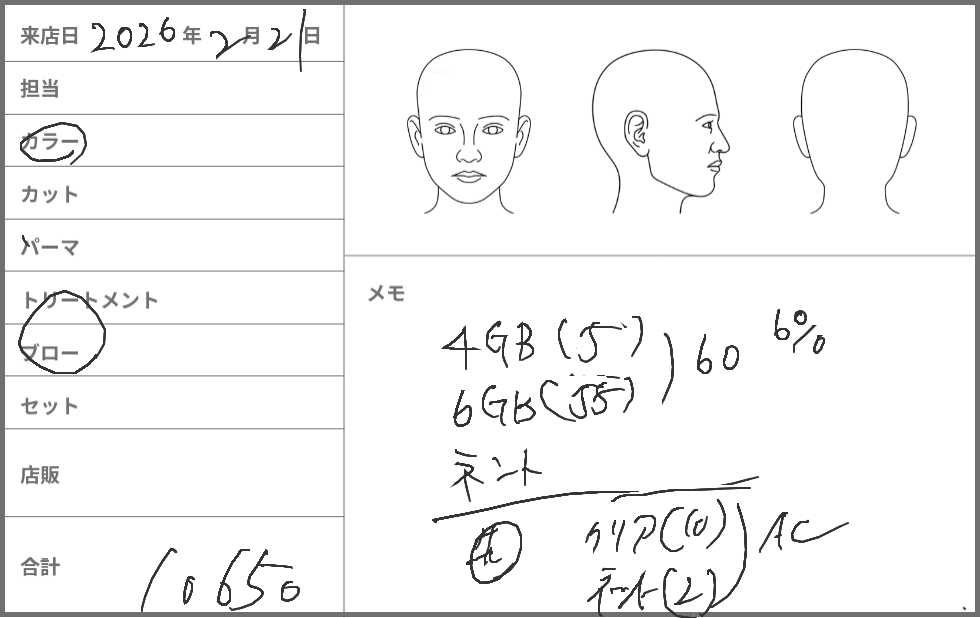 来店日 2026年2月21日
担当
カラー
カット
パーマ
トリートメント
ブロー
セット
店販
合計 10650
メモ
4GB (5) 60 6%
6GB (55)
ネント
クリア (10) AC
ネント (2)